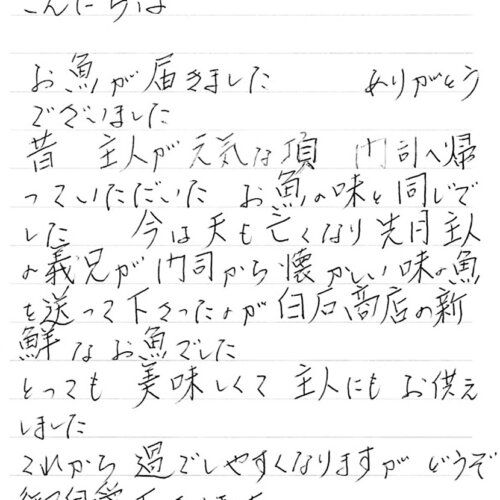 こんにちは
お魚が届きました　ありがとう
ございました
昔　主人が元気な頃　門司へ帰
っていただいた　お魚の味と同じで
した　今は夫も亡くなり先月主人
の義兄が門司から懐かしい味の魚
を送って下さったのが白石商店の新
鮮なお魚でした
とっても美味しくて主人にもお供え
しました
これから過ごしやすくなりますがどうぞ